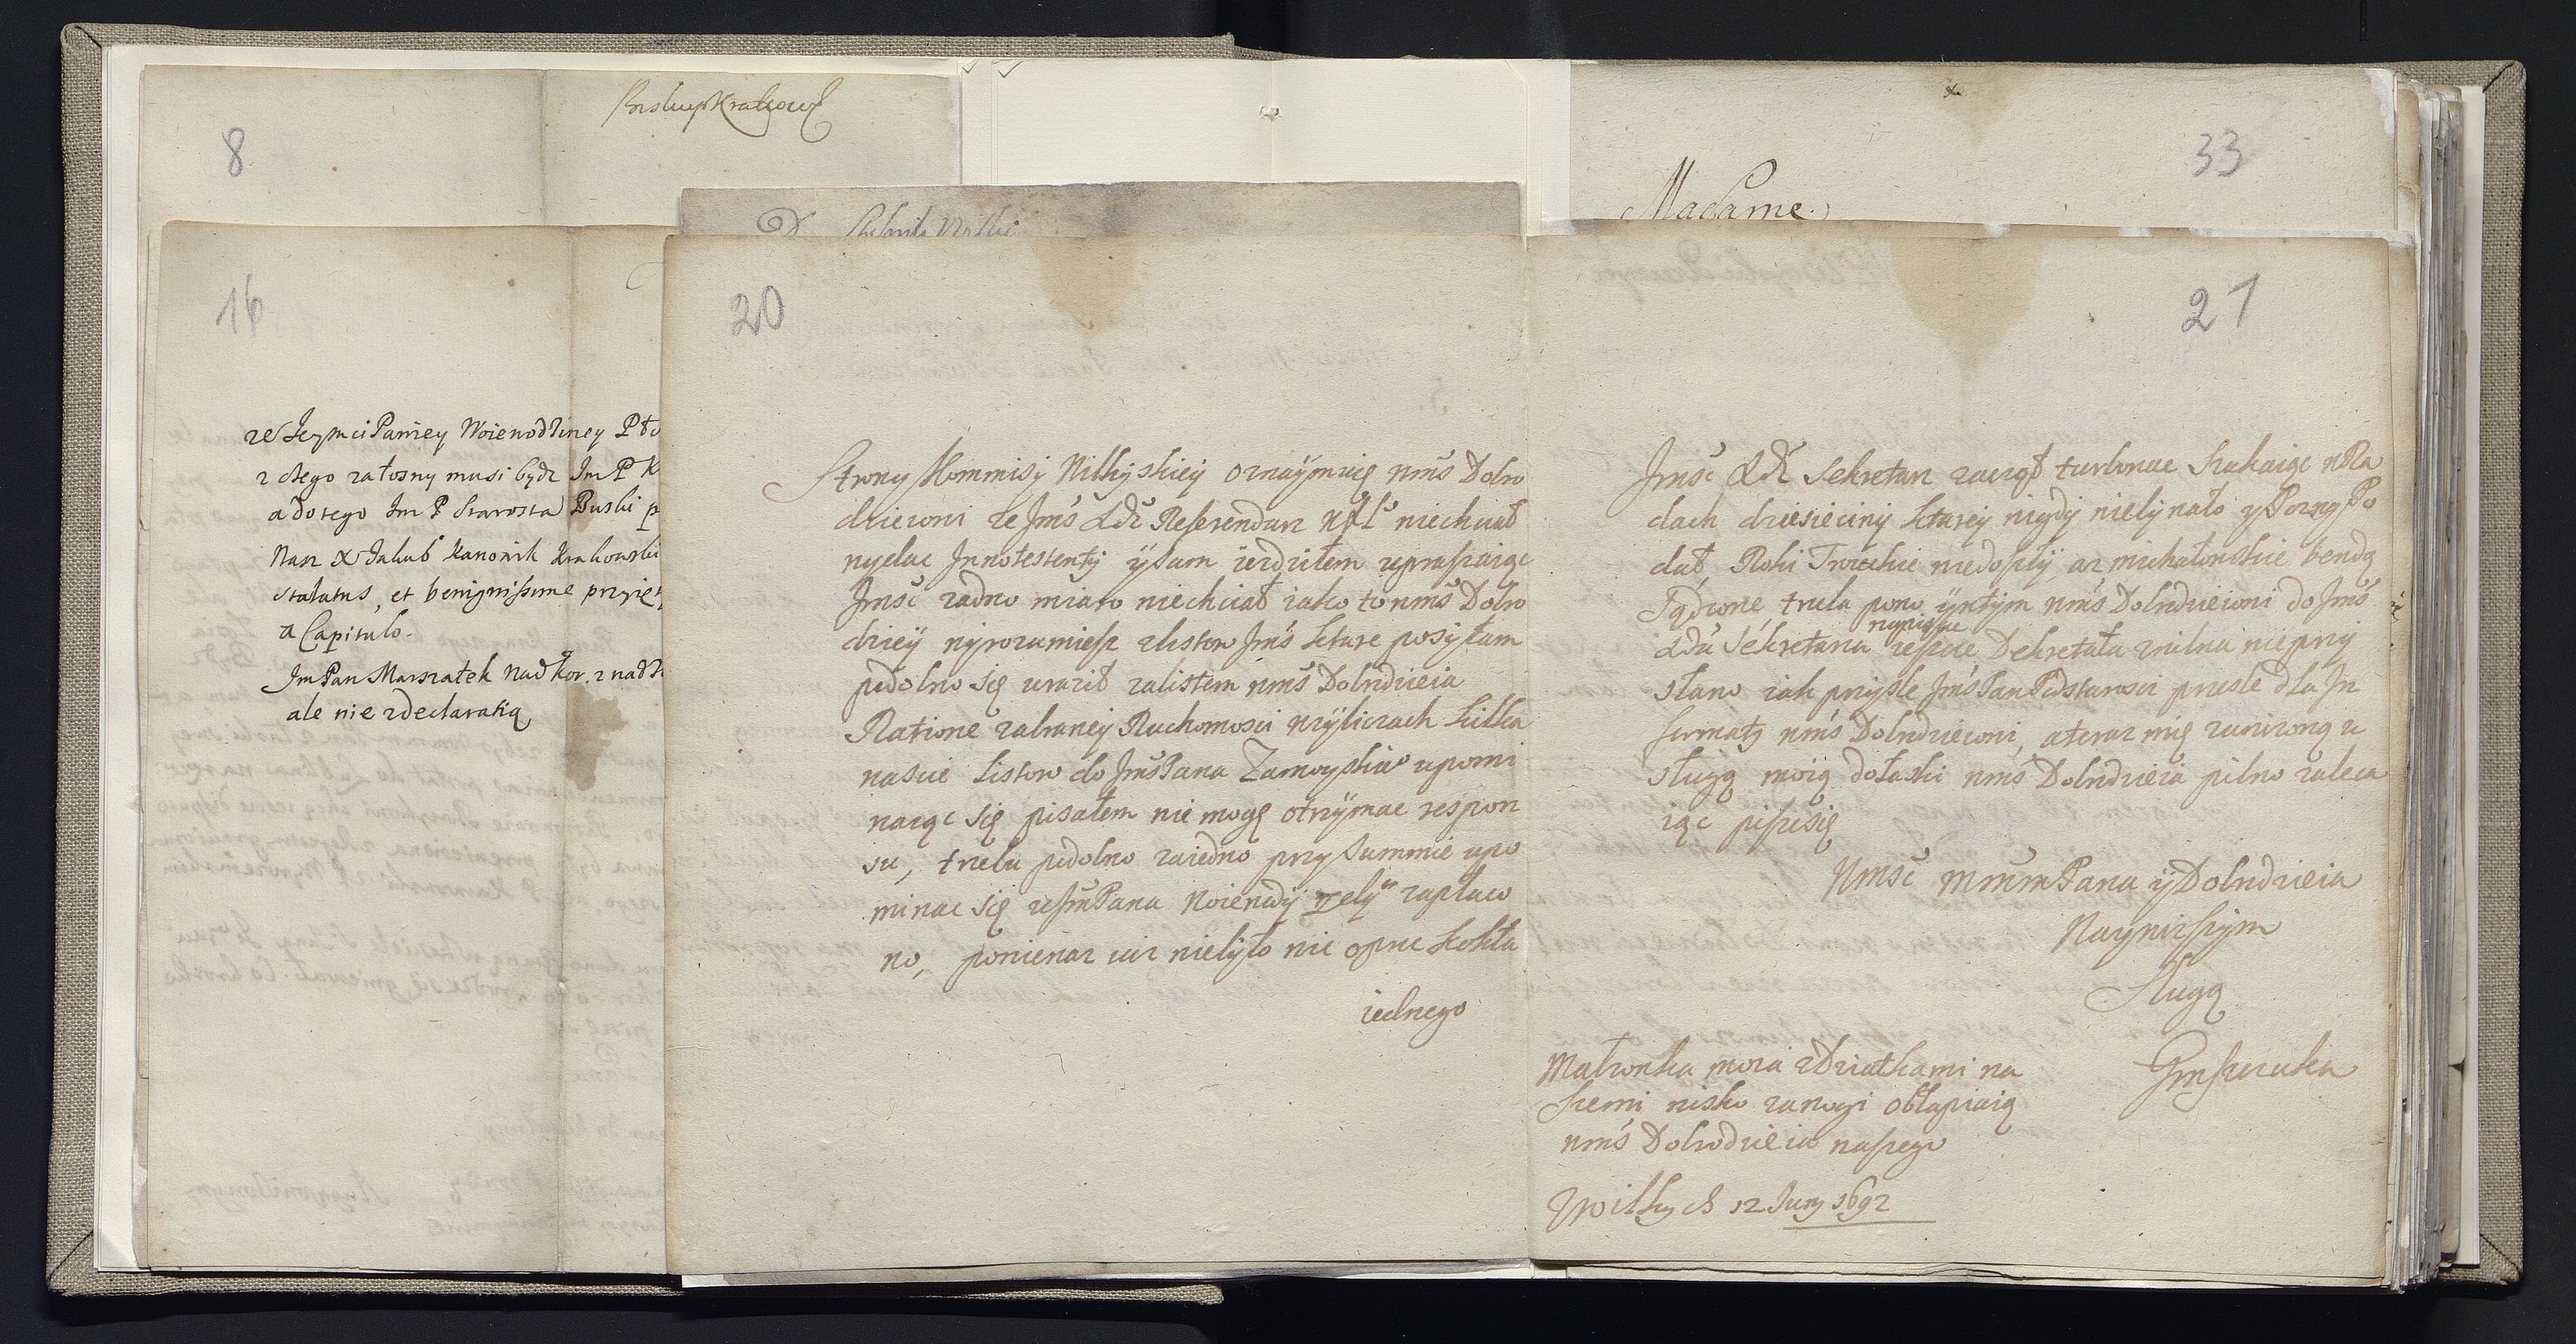 Biskup Krakows
8
16
ze Jeymci Paniey Woiewodziney Pło
z czego załosny musi bydz Im P K
a do tego Im P Starosta Buski p
Nasz X Jakub Kanonik Krakowski
status, et benignissime przyię
a Capitulo.
Im Pan Marszałek Nad Kor. z nadz
ale nie z declaratią
20
Strony Kommisÿ Wilkÿskieÿ oznaÿmuię wms Dobro
dzieiowi ze Jms Xdz Referendarz niechciał
wydac Innotestentÿ ÿ sam iezdziłem upraszaiąc
Jmsc zadno miaro niechciał iako to wms Dobro
dzieÿ wyrozumiesz z listow Jms kture posÿłam
podobno się uraził za listem wms Dobrdzieia
Ratione zabraneÿ Ruchomosci w kilka
nascie listow do Jms Pana Zamoyskie° upomi
naiąc się pisałem nie mogę otrzÿmac respon
su, trzeba podobno zaiedno przy Summie upo
minac się u Jm Pana Woiewodÿ zebÿ zapłaco
no, poniewaz iuz niebÿło nic opruc kokła
iednego
33
Madame.
21
Jmsc Xdz Sekretarz zaczął turbowac Szukaiąc w
dach dziesięcinÿ kturey nigdÿ niebÿwało y Pozwy Po
dał, Roki Troieckie niedoszłÿ, az michałowskie bendą
Sądzone, trzeba pono ÿ w tÿm wms Dobrdzieiowi do Jms
napisac
Xdza Sekretarza Dekretała z wilna nie przÿ
słano iak przÿsle Jms Pan Podstarosci przesle dla In
formatÿ wms Dobrdzieiowi, a teraz mię zunizoną u
sługą moią do łaski wms Dobrdzieia pilno zaleca
iąc piszesię
Wmsc mmm Pana ÿ Dobrdzieia
Nayniszszÿm
Sługą
Małzonka moia z Dziatkami na
szemi nisko za nogi obłapiaią
wms Dobrodzieia naszego
Z Wilky d 12 Juny 1692